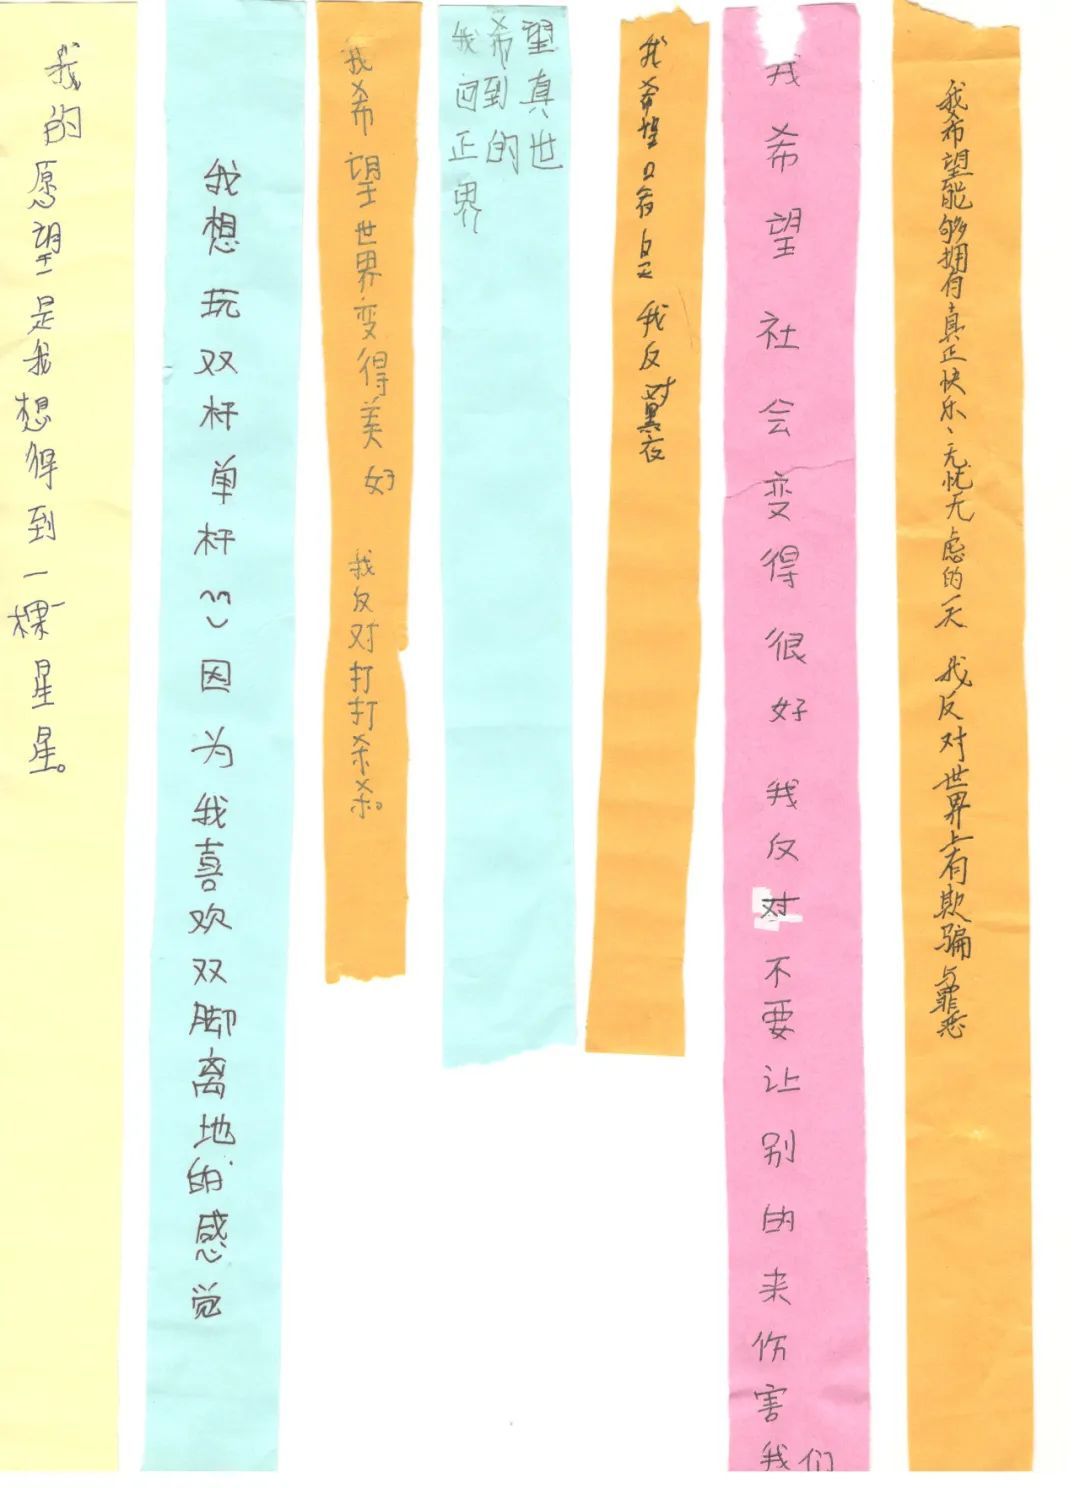 我的愿望是我想得到一棵星星。
我想玩双杆单杆因为我喜欢双脚离地的感觉
我希望世界变得美好 我反对打打杀杀。
我希望
回到真
正的世
界
我希望只有白天 我反对黑夜
我希望社会变得很好 我反对不要让别的来伤害我们
我希望能够拥有真正快乐、无忧无虑的一天 我反对世界上有欺骗与罪恶